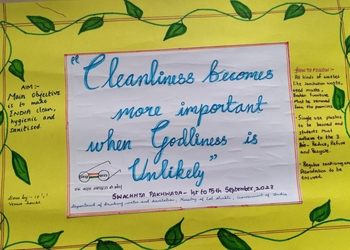 "Cleanliness becomes
more important
when Godliness is
Unlikely"
SWACHHTA PAKHWADA- 1st to 15th September, 2023
Department of Drinking water and Sanitation, Ministry of Jal Shakti, Government of India
एक कदम स्वच्छता की ओर
AIM:-
Main objective
is to make
INDIA clean,
hygienic and
sanitised
Done by:- 10 'c'
How to follow:-
All kinds of wastes
like sanitation
must be
removed from
the premises
Single use plastics
to be banned and
students must
adhere to the 3
R's- Reduce, Reuse
and Recycle.
Regular sanitising and
to be done.